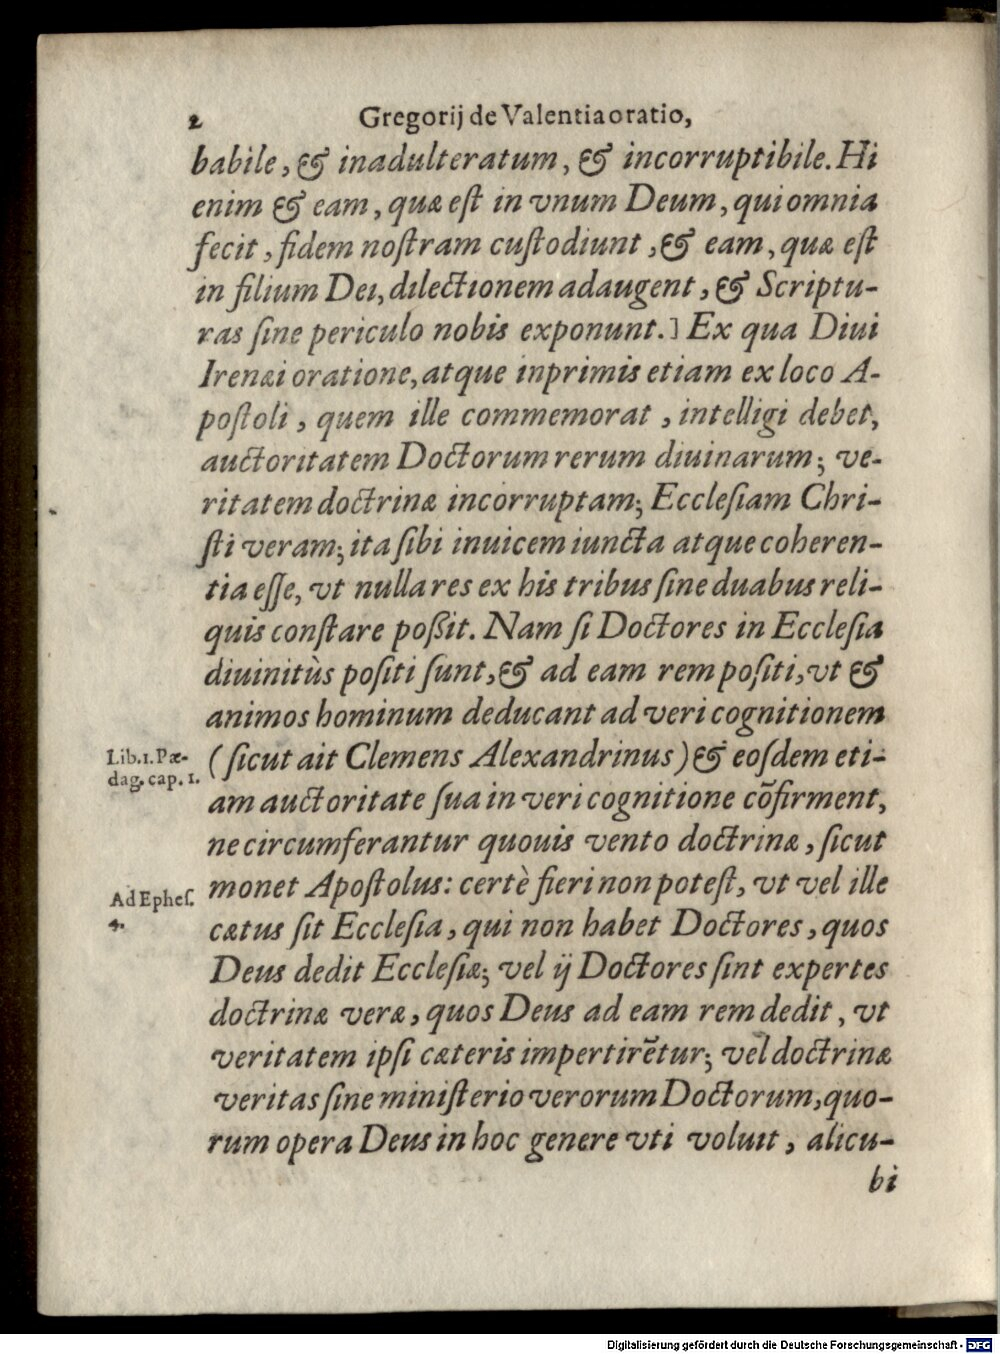 2 Gregorij de Valentia oratio,
babile, & inadulteratum, & incorruptibile. Hi
enim & eam, quæ est in vnum Deum, qui omnia
fecit, fidem nostram custodiunt, & eam, quæ est
in filium Dei, dilectionem adaugent, & Scriptu-
ras sine periculo nobis exponunt.] Ex qua Diui
Irenæi oratione, atque inprimis etiam ex loco A-
postoli, quem ille commemorat, intelligi debet,
auctoritatem Doctorum rerum diuinarum; ve-
ritatem doctrinæ incorruptam; Ecclesiam Chri-
sti veram; ita sibi inuicem iuncta atque coheren-
tia esse, vt nulla res ex his tribus sine duabus reli-
quis constare poßit. Nam si Doctores in Ecclesia
diuinitùs positi sunt, & ad eam rem positi, vt &
animos hominum deducant ad veri cognitionem
Lib. 1. Pæ-
dag. cap. 1.
(sicut ait Clemens Alexandrinus) & eosdem eti-
am auctoritate sua in veri cognitione cõfirment,
ne circumferantur quouis vento doctrinæ, sicut
Ad Ephes.
4.
monet Apostolus: certè fieri non potest, vt vel ille
cætus sit Ecclesia, qui non habet Doctores, quos
Deus dedit Ecclesiæ; vel ij Doctores sint expertes
doctrinæ veræ, quos Deus ad eam rem dedit, vt
veritatem ipsi cæteris impertirẽtur; vel doctrinæ
veritas sine ministerio verorum Doctorum, quo-
rum opera Deus in hoc genere vti voluit, alicu-
bi
Digitalisierung gefördert durch die Deutsche Forschungsgemeinschaft - DFG